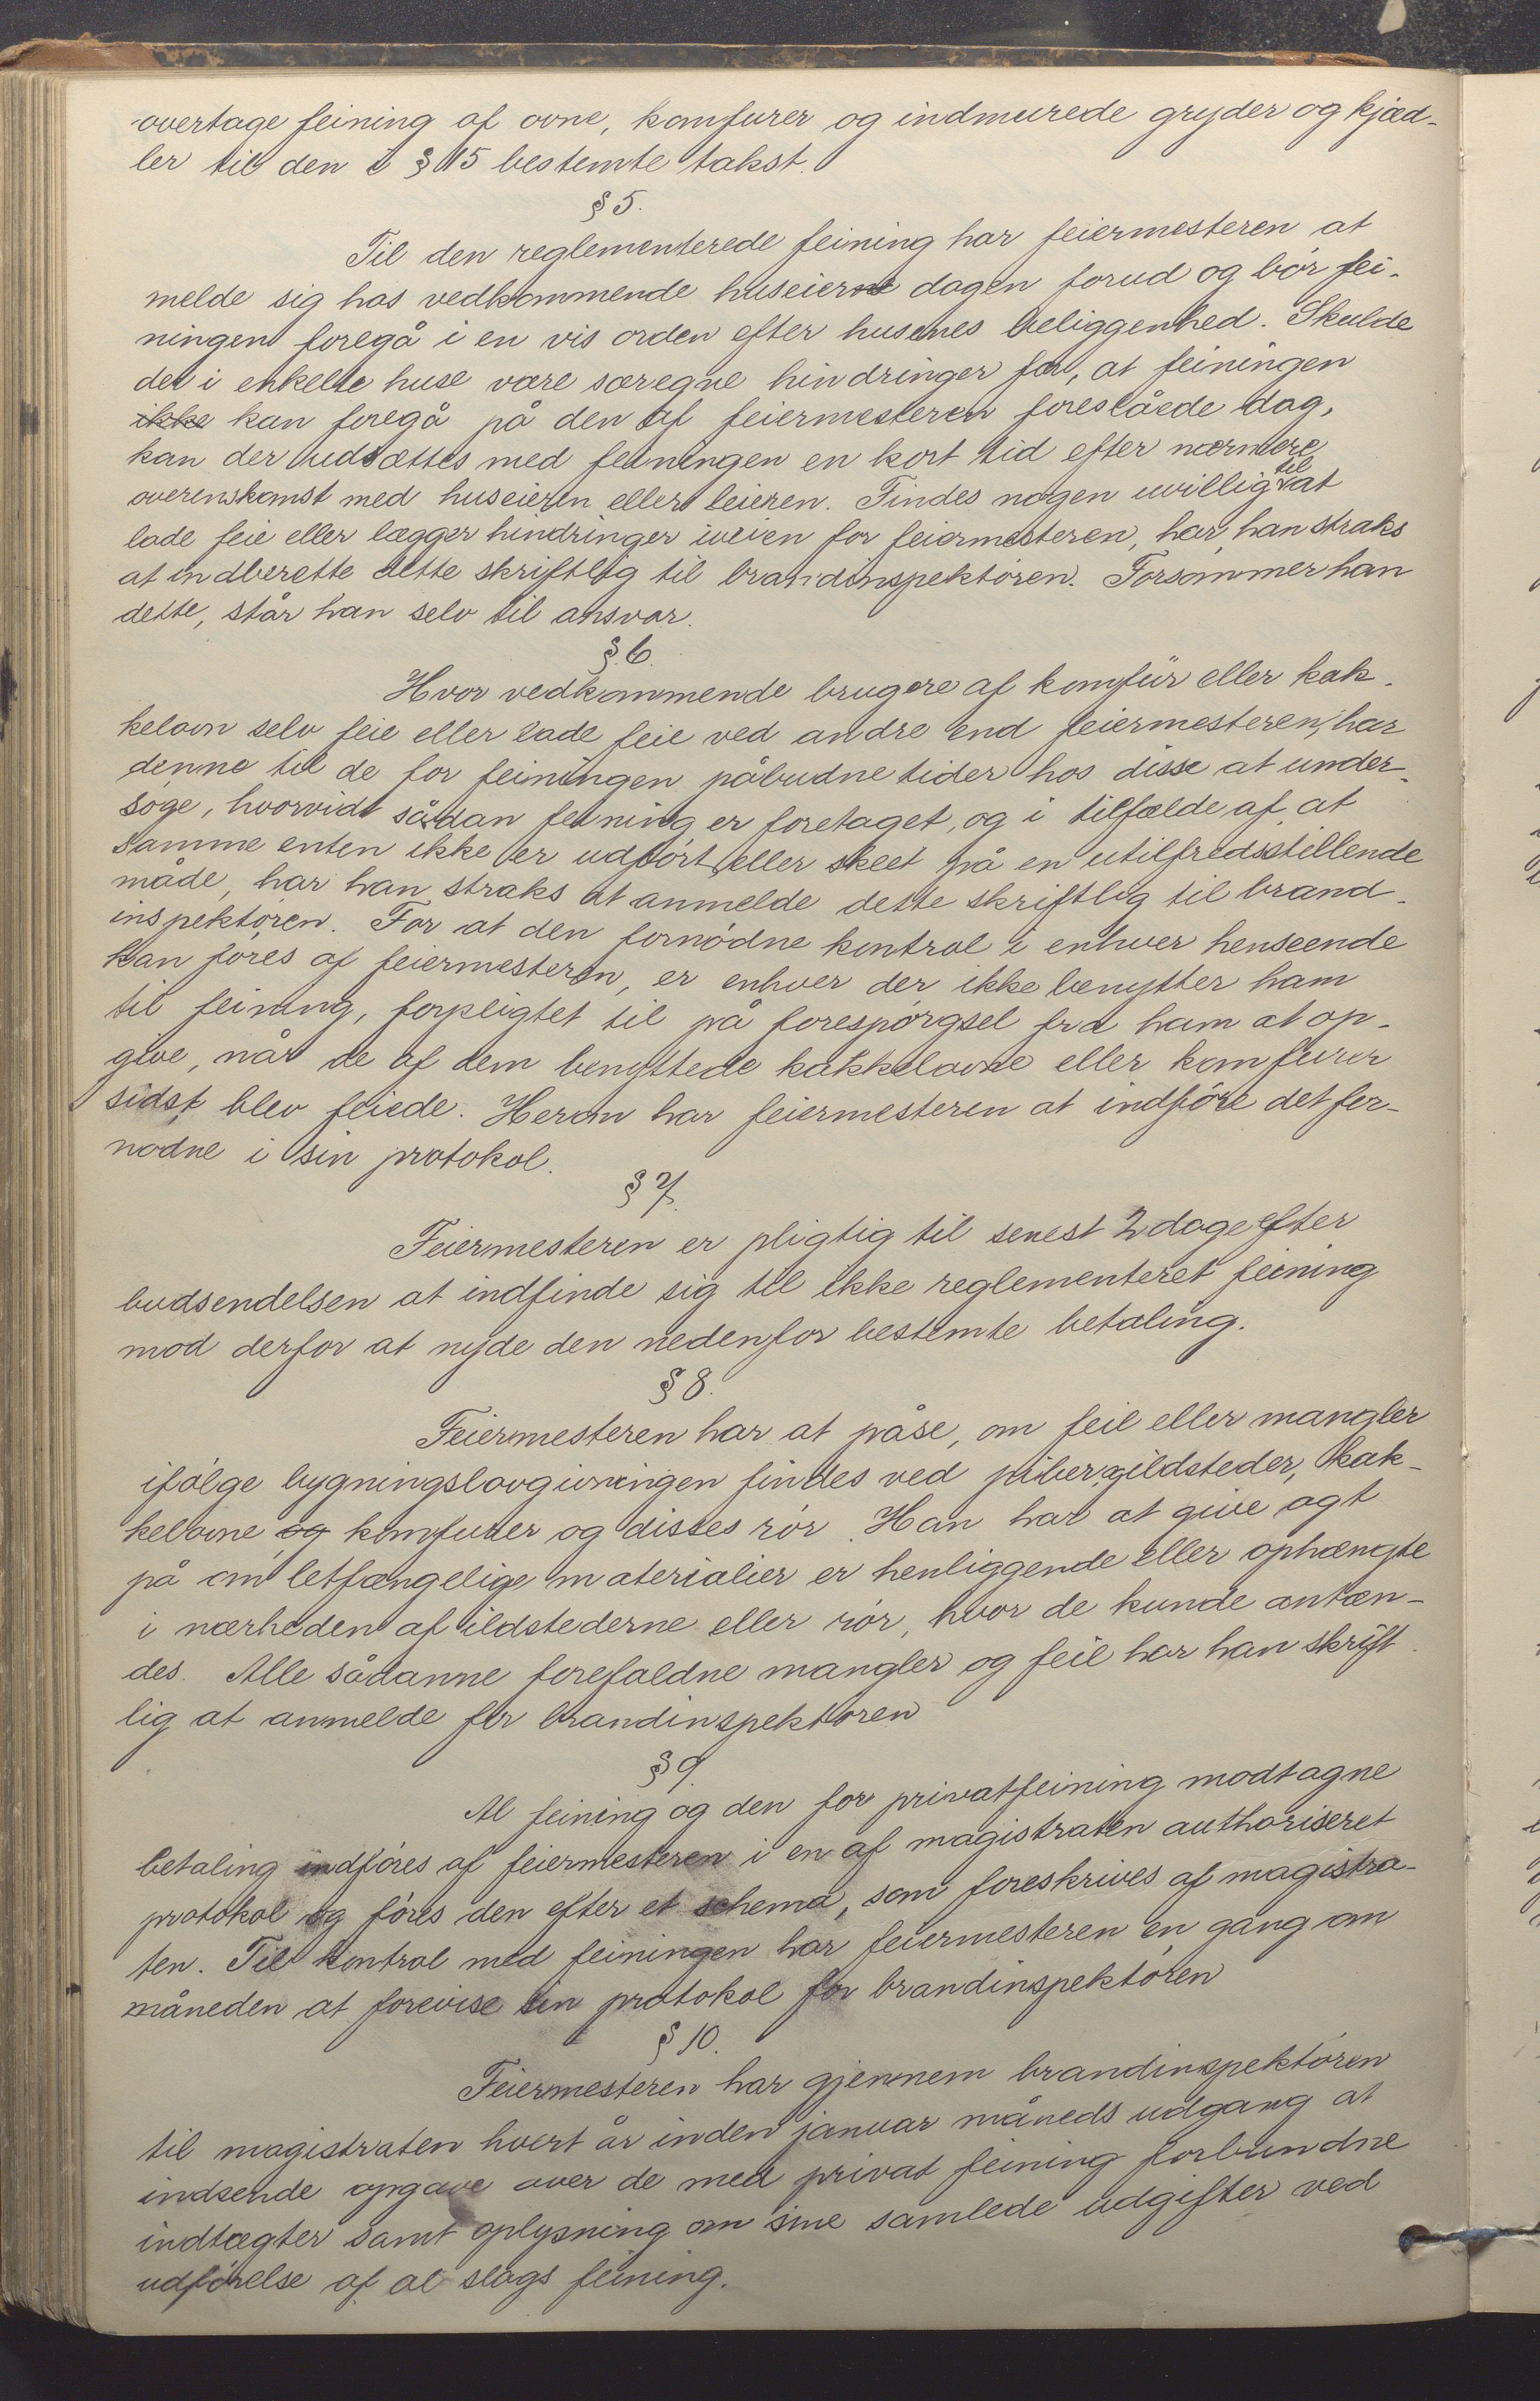 overtage feining af ovne, komfurer og indmurede gryder og kjæd-
ler til den i § 15 bestemte takst.
§ 5.
Til den reglementerede feining har feiermesteren at
melde sig hos vedkommende huseier dagen forud og bör fei-
ningen foregå i en vis orden efter husenes beliggenhed. Skulde
det i enkelte huse være særegne hindringer for, at feiningen
ikke kan foregå på den af feiermesteren foreslåede dag,
kan der udsættes med feiningen en kort tid efter nærmere
overenskomst med huseieren eller leieren. Findes nogen uvillig til at
lade feie eller lægger hindringer iveien for feiermesteren, har han straks
at indberette dette skriftlig til brandinspektören. Forsømmer han
dette, står han selv til ansvar.
§ 6.
Hvor vedkommende brugere af komfür eller kak-
kelovn selv feie eller lade feie ved andre end feiermesteren, har
denne til de for feiningen påbudne tider hos disse at under-
söge, hvorvidt sådan feining er foretaget, og i tilfælde af at
samme enten ikke er udfört eller skeet på en utilfredsstillende
måde, har han straks at anmelde dette skriftlig til brand-
inspektören. For at den fornödne kontrol i enhver henseende
kan föres af feiermesteren, er enhver der ikke benytter ham
til feining, forpligtet til på forespörgsel fra ham at op-
give, når de af dem benyttede kakkelovne eller komfurer
sidst blev feiede. Herom har feiermesteren at indföre det for-
nødne i sin protokol.
§ 7.
Feiermesteren er pligtig til senest 2 dage efter
budsendelsen at indfinde sig til ikke reglementeret feining
mod derfor at nyde den nedenfor bestemte betaling.
§ 8.
Feiermesteren har at påse, om feil eller mangler
ifölge bygningslovgivningen findes ved piber, ildsteder, kak-
kelovne og komfurer og disses rör. Han har at give agt
på om letfængelige materialier er henliggende eller ophængte
i nærheden af ildstederne eller rör, hvor de kunde antæn-
des. Alle sådanne forefaldne mangler og feil har han skrift-
lig at anmelde for brandinspektoren
§ 9.
Al feining og den for privatfeining modtagne
betaling indföres af feiermesteren i en af magistraten authoriseret
protokol og föres den efter et schema, som foreskrives af magistra-
ten. Til kontrol med feiningen har feiermesteren én gang om
måneden at forevise sin protokol for brandinspektören
§ 10.
Feiermesteren har gjennem brandinspektören
til magistraten hvert år inden januar måneds udgang at
indsende opgave over de med privat feining forbundne
indtægter samt oplysning om sine samlede udgifter ved
udförelse af al slags feining.